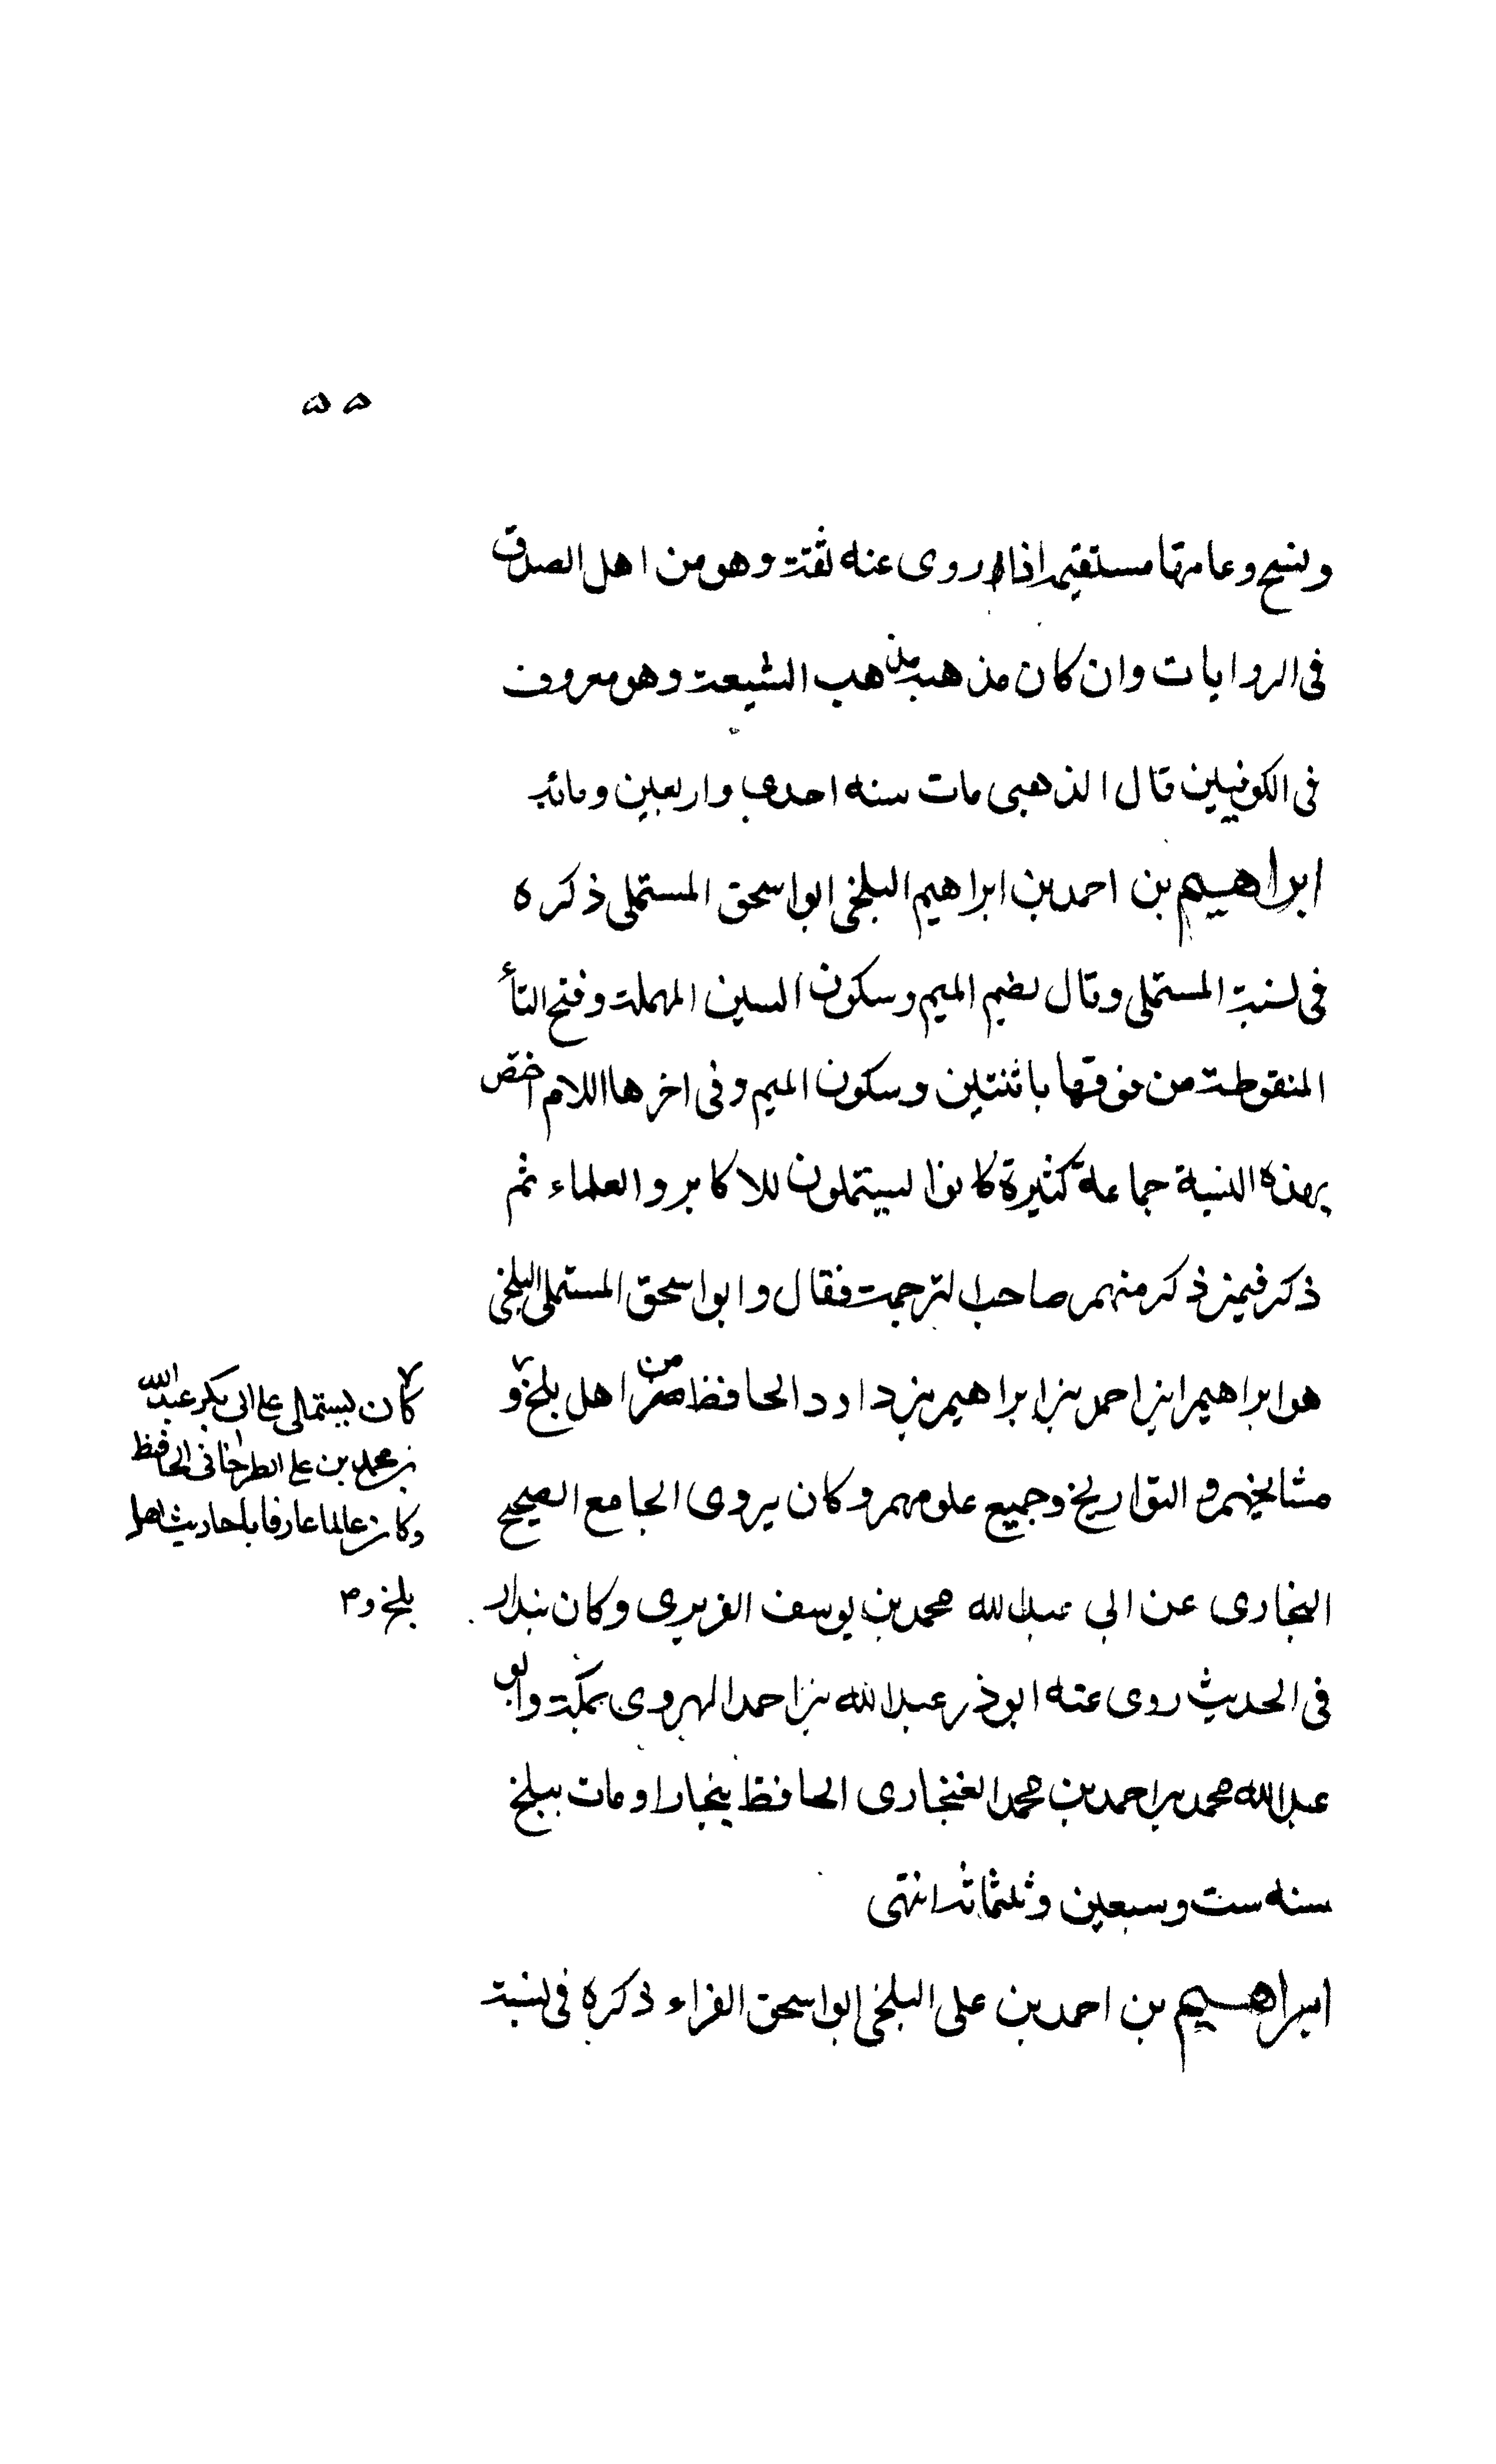 ۵۵
ونسخ وعامتها مستقيمة اذا روى عنه ثقة وهو من اهل الصدق
فى الروايات وان كان مذهبه مذهب الشيعة وهو معروف
فى الكوفيين قال الذهبى مات سنه احدى واربعين ومائة
ابراهيم بن احمد بن ابراهيم البلخى ابو اسحق المستملى ذكره
فى نسبة المستملى وقال بضم الميم وسكون السين المهملة وفتح التأ
المنقوطة من فوقها باثنتين وسكون الميم وفى اخرها اللام اختص
بهذه النسبة جماعة كثيرة كانوا يستملون للاكابر والعلماء ثم
ذكر فيمن ذكر منهم صاحب الترجمة فقال وابو اسحق المستملى البلخى
هو ابراهيم ابن احمد بن ابراهيم بن داود الحافظ من اهل بلخ و
مشايخهم و التواريخ وجميع علومهم وكان يروى الجامع الصحيح
البخارى عن ابى عبد الله محمد بن يوسف الفربرى وكان بندار
فى الحديث روى عنه ابوذر عبد الله بن احمد الهروى بمكة وابو
عبد الله محمد بن احمد بن محمد الغنجارى الحافظ ببخارا ومات ببلخ
سنه ست وسبعين وثلثمائة انتهى
ابراهيم بن احمد بن على البلخى ابو اسحق الفراء ذكره فى نسبة
كان يستملى على ابى بكر عبد الله
بن محمد بن على الطرخانى الحافظ
وكان عالما عارفا باحاديث اهل
بلخ و